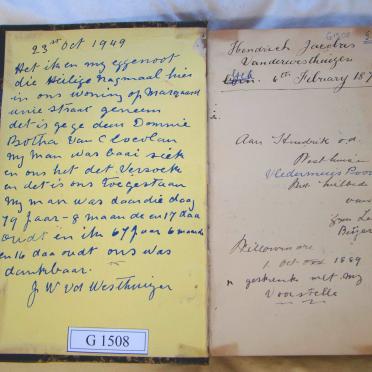 23st Oct 1949
Het ik en my eggenoot
die Heilige Nagmaal hier
in ons woning op Marquard
unie Straat geneem
det is ge ge deur Domnie
Botha Van Clocolan
My man was baai siek
en ons het det Versoek
en det is ons toegestaan
My man was daardie dag
79 Jaar - 8 maande en 17 daa
oudt en ik 67 Jaar 6 maande
en 16 daa oudt ons was
dankbaar.
J W vd Westhuizer
G 1508
G1508
Hendrick Jacobus
Vanderwesthuizen
Geb. 6th February 187
Aan Hendrik v.d.
Westhuizen
van
Willowmore
1 Oct 1889
n geskenk met my